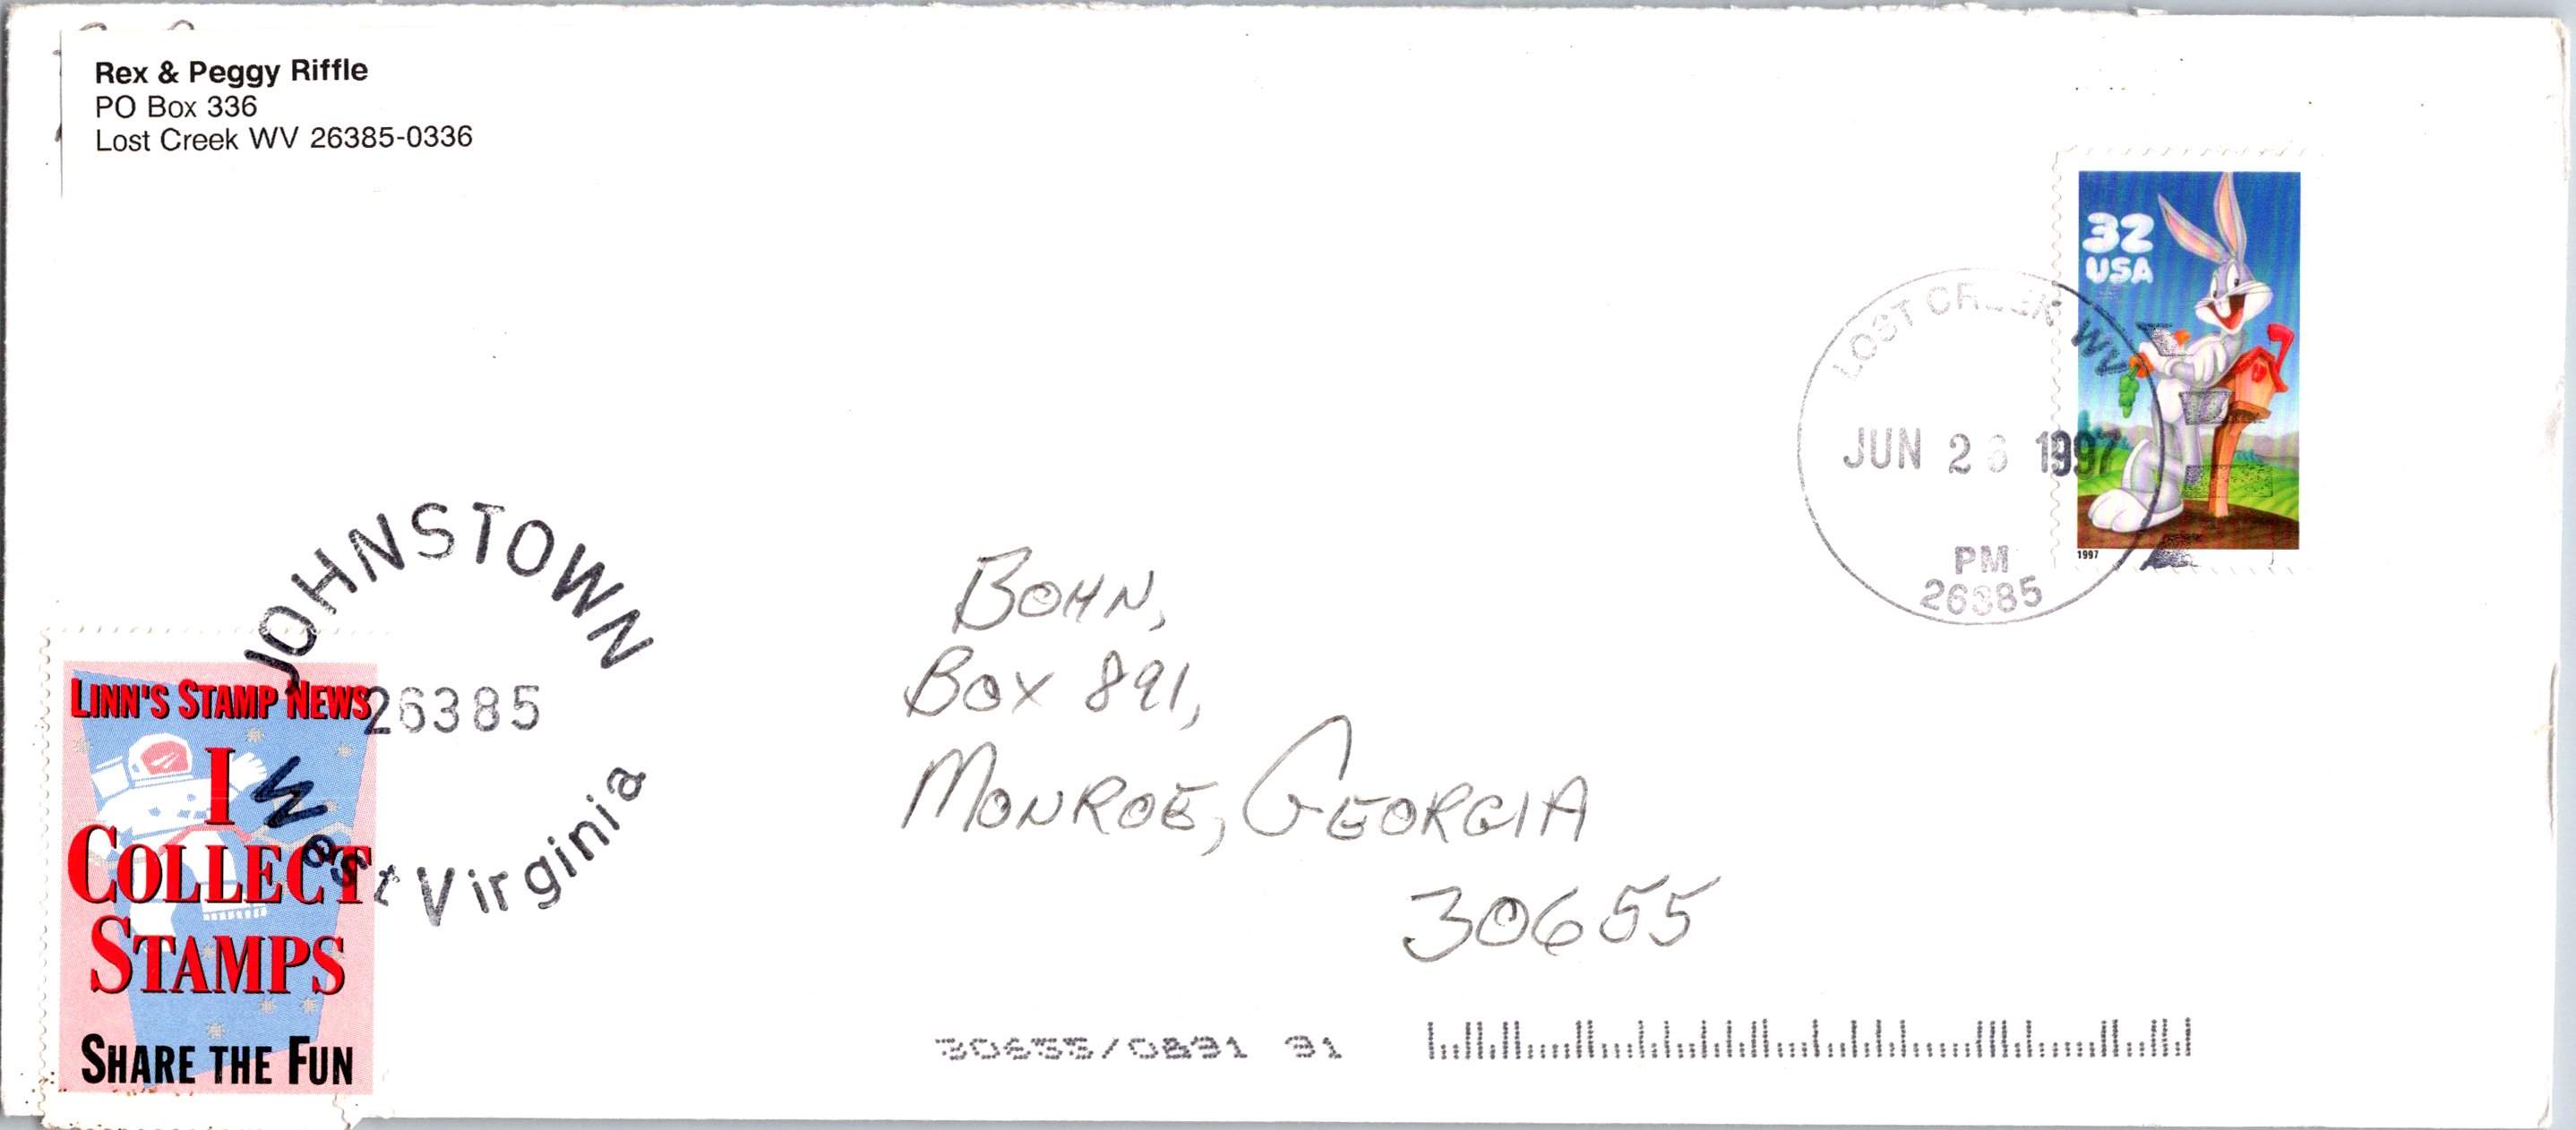 Rex & Peggy Riffle
PO Box 336
Lost Creek WV 26385-0336
32
USA
1997
LOST CREEK WV
JUN 1997
PM
26385
JOHNSTOWN
26385
West Virginia
BOHN,
BOX 891,
MONROE, GEORGIA
30655
LINN'S STAMP NEWS
I
COLLECT
STAMPS
SHARE THE FUN
30655/0891 91